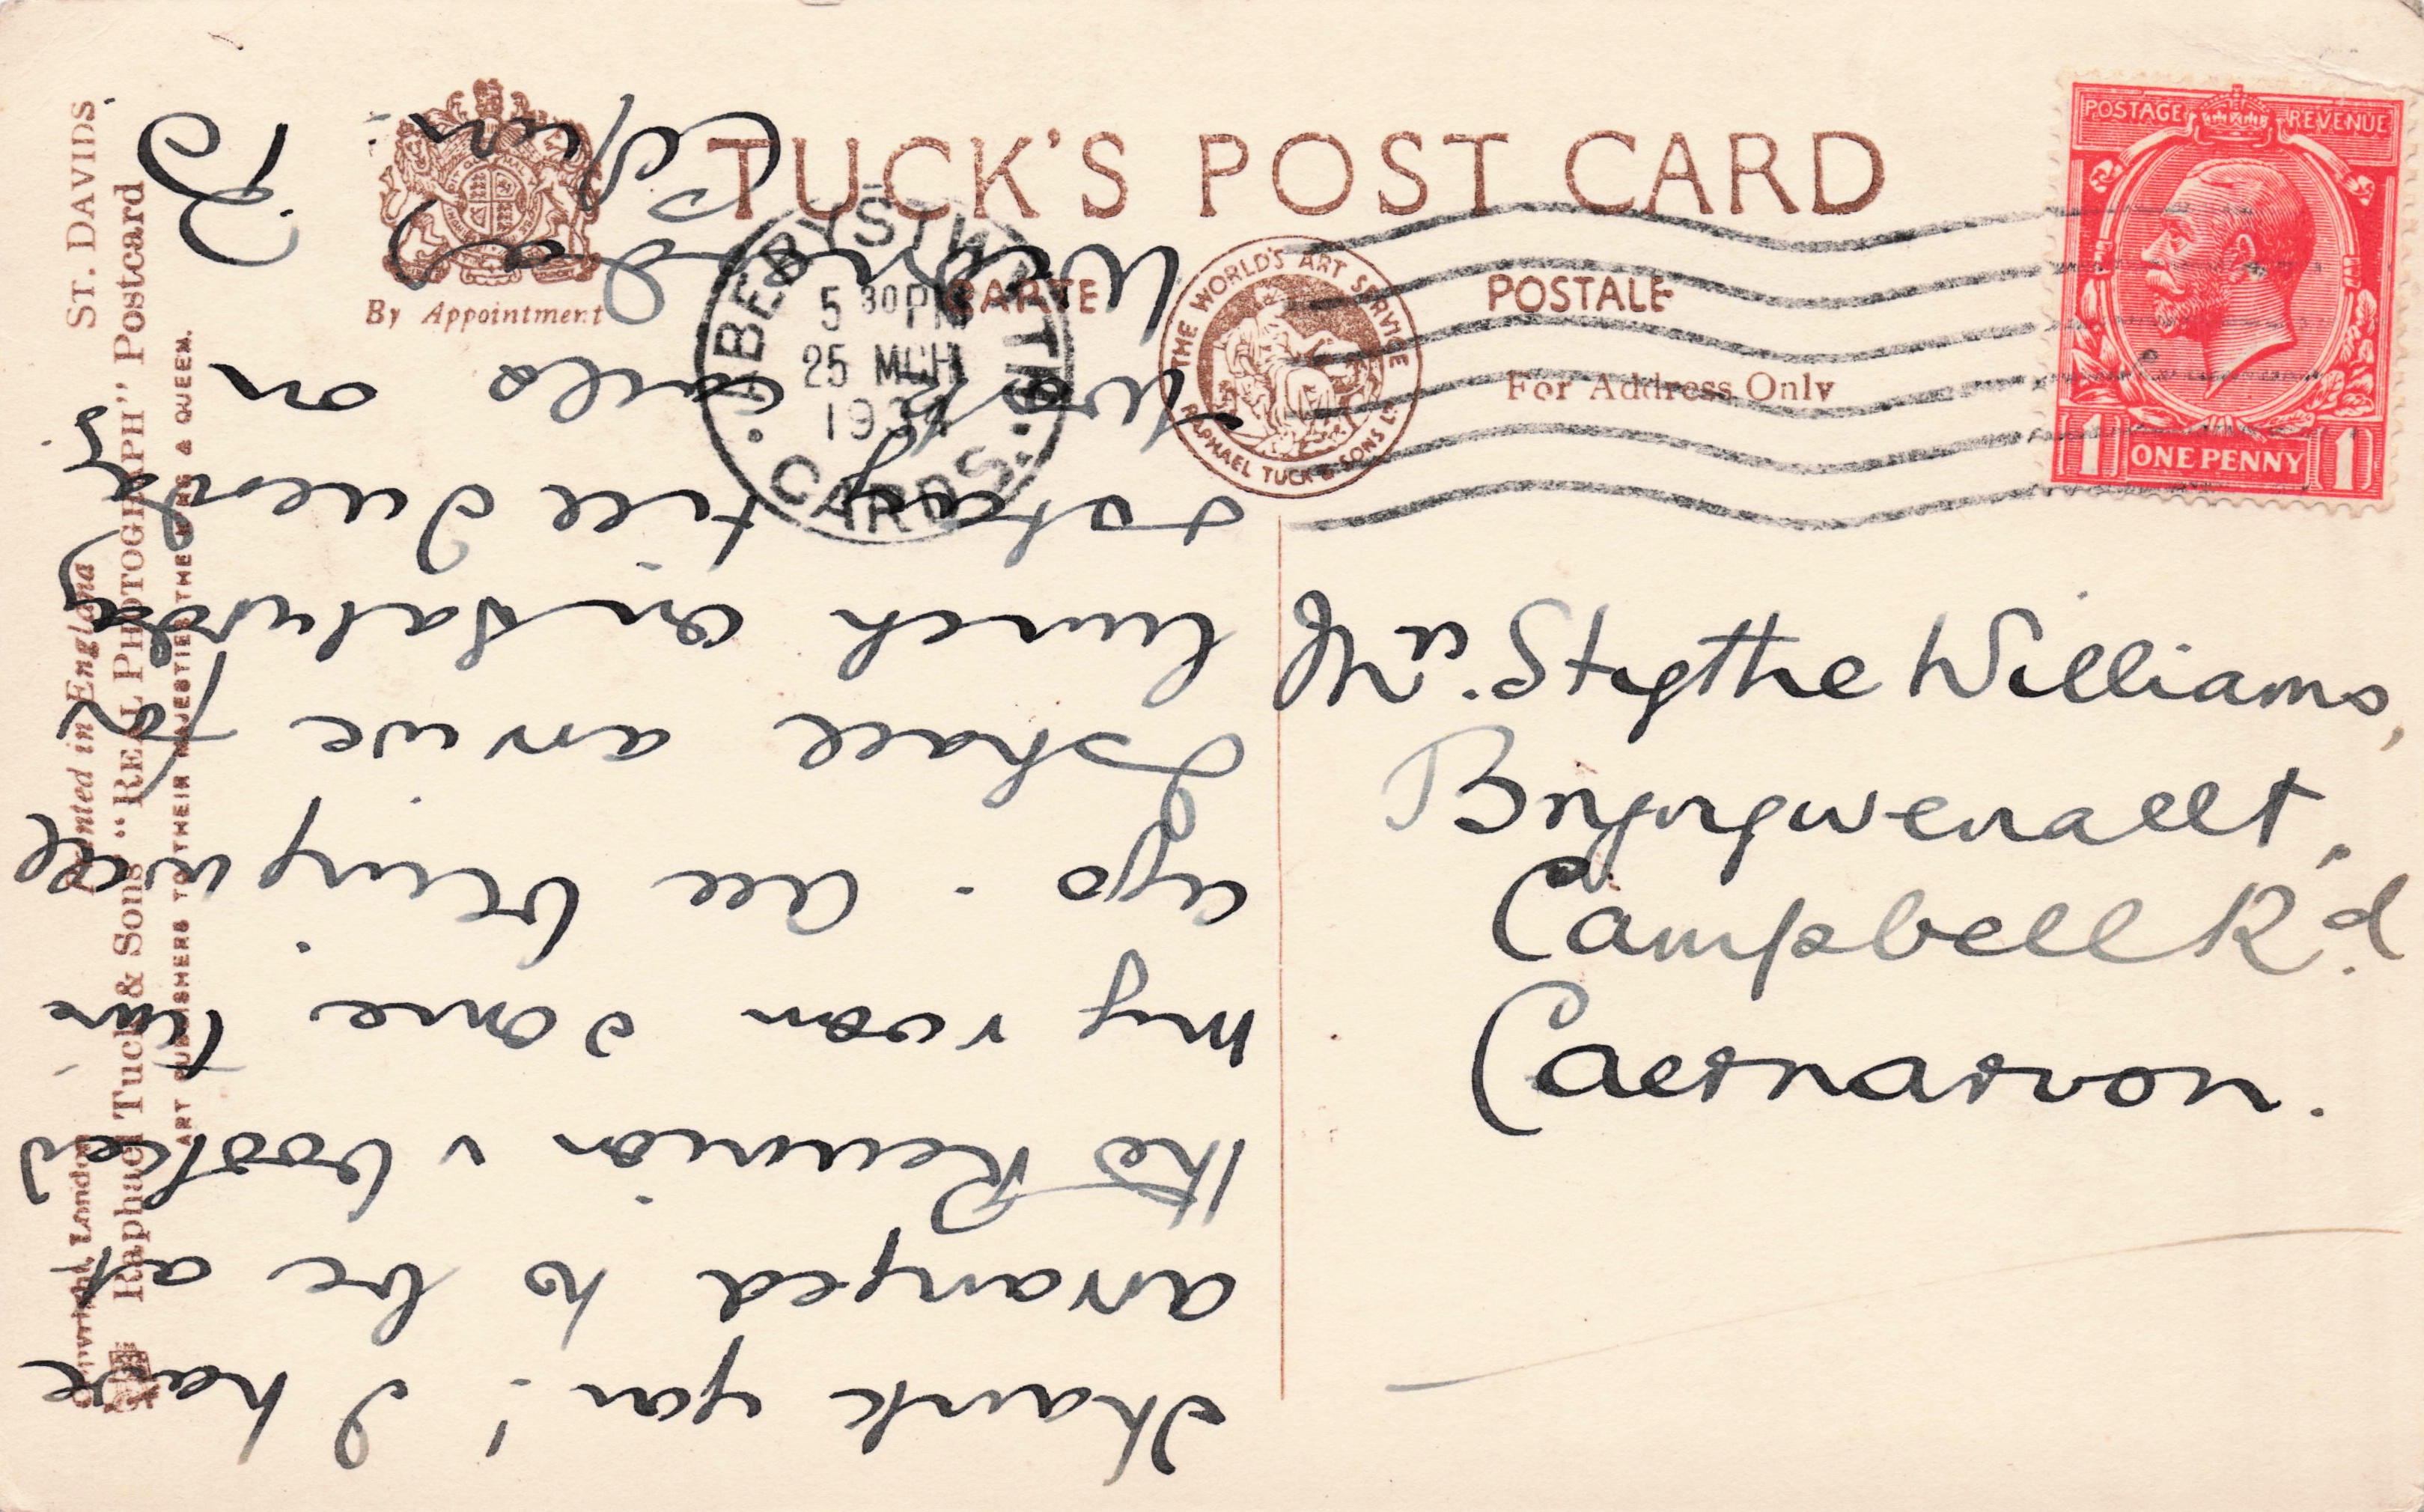 TUCK'S POST CARD
By Appointment
CARTE POSTALE
For Address Only
THE WORLD'S ART SERVICE
RAPHAEL TUCK & SONS LTD
ABERYSTWYTH
5 30PM
25 MCH
1934
CARDS.
POSTAGE REVENUE
1 ONE PENNY 1
Mrs. Stythe Williams,
Bryngwenallt,
Campbell Rd.
Caernarvon.
Thank you! I have
arranged to be at
the Reunion & booked
my room some time
ago. All being well
I shall arrive for
lunch on Saturday
& stay till Tuesday
Work calls on
Cofion
ST. DAVIDS.
Printed in England
Copyright, London
Raphael Tuck & Sons' "REAL PHOTOGRAPH" Postcard
ART PUBLISHERS TO THEIR MAJESTIES THE KING & QUEEN.